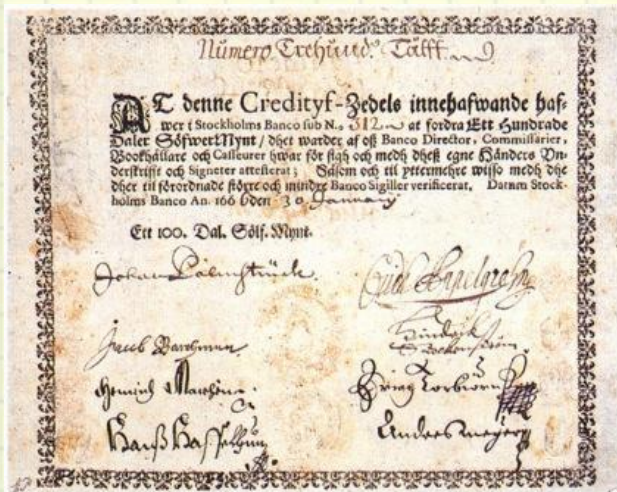 Numero Trehund. Tålff
AT denne Credityf-Zedels innehafwande haf-
wer i Stockholms Banco sub N., 312 at fordra Ett Hundrade
Daler SölfwerMynt / dhet warder af oß Banco Director, Commissarier,
Bookhållare och Casseurer hwar för sigh och medh dheß egne Händers Un-
derskrifft och Signeter attesterat; Såsom och til yttermehre wisso medh dhe
dher til förordnade större och mindre Banco Sigiller verificerat. Datum Stock-
holms Banco An. 166 6 den 30 January
Ett 100. Dal. Sölf. Mynt.
Johan Palmstruck
Jacob
Hinrich
Hanß
Anders Meyer